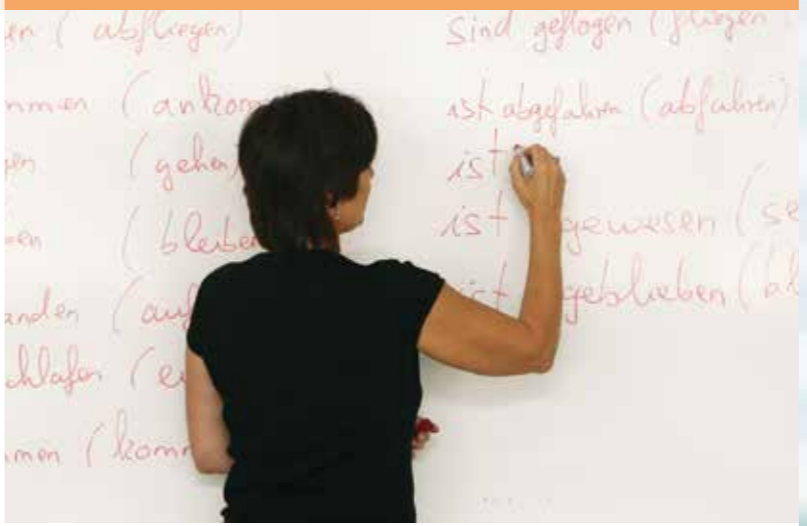 (abfliegen)
(ankom
(gehen
(bleiben
anden (auf
chlafen (e
mmen (komm
sind geflogen (fliegen
ist abgefahren (abfahren)
ist
ist gewesen (se
ist geblieben (bl